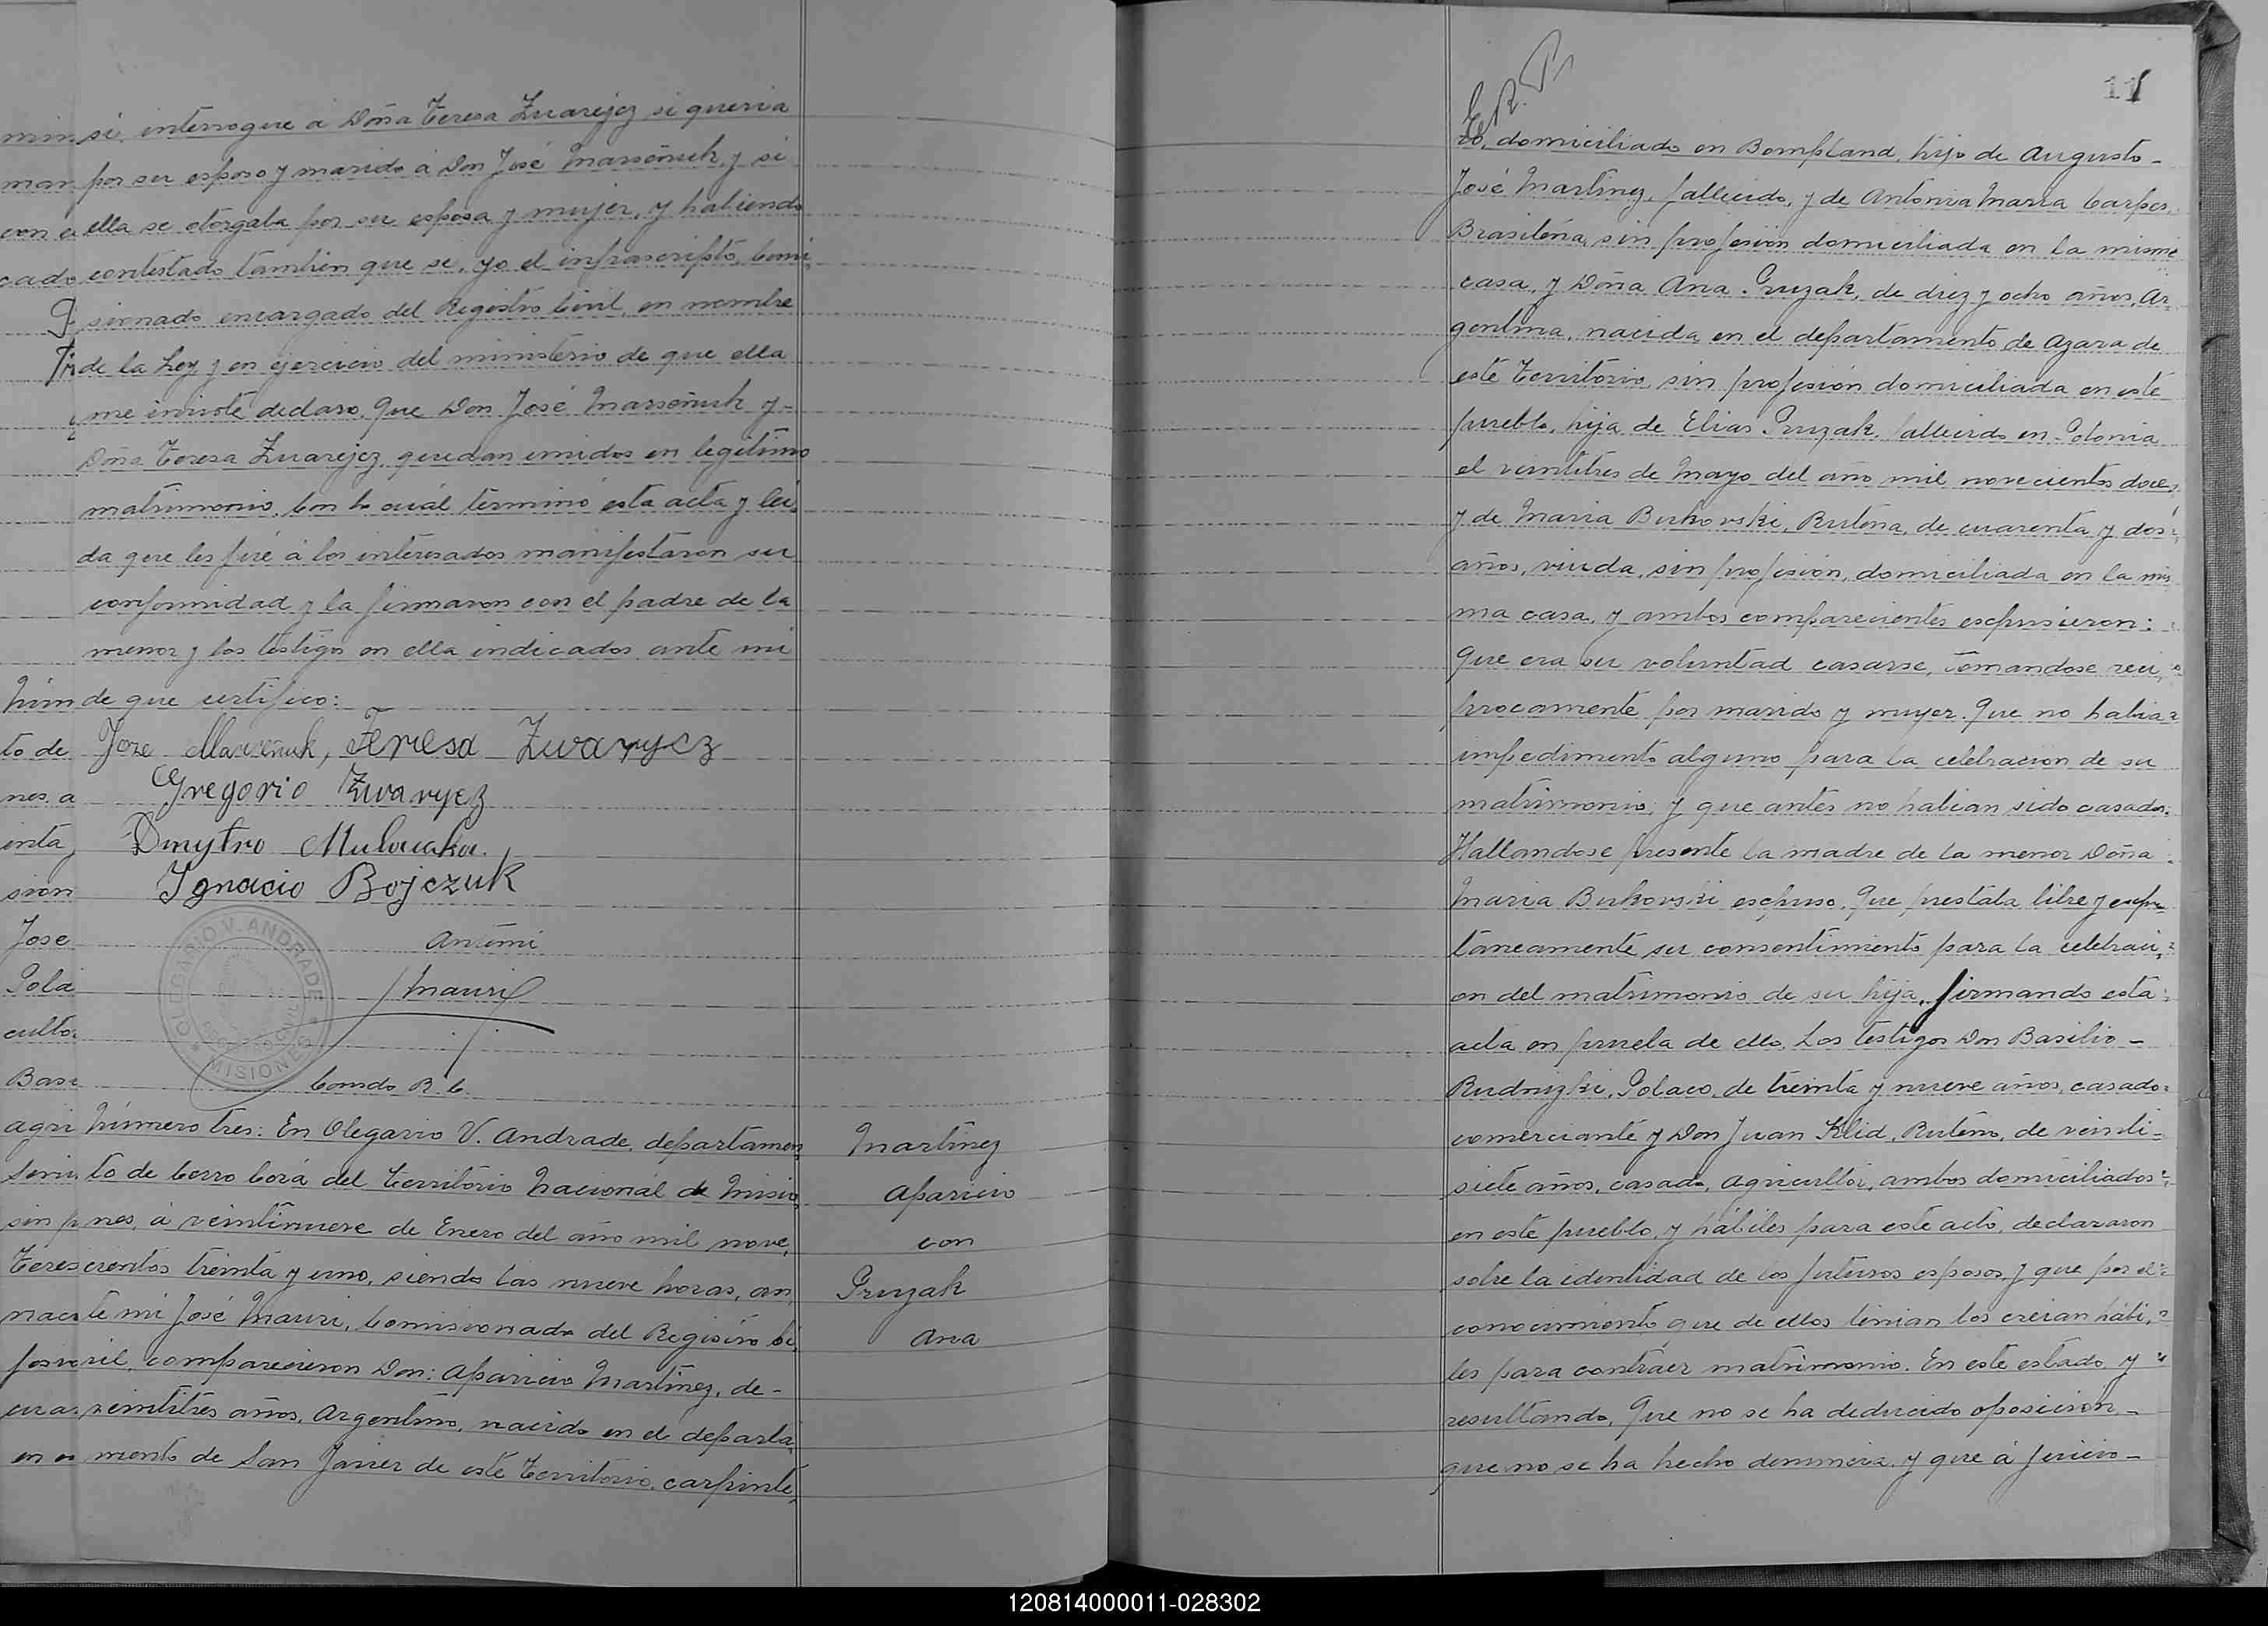 si, interrogue á Doña Teresa Zuarejcz si queria
por su esposo y marido á Don José Marseñuk, y si
ella se otorgaba por su esposa y mujer, y habiendo
contestado tambien que si, yo el infrascripto, Comi,
sionado encargado del Registro Civil, en nombre
de la Ley y en ejercicio del ministerio de que ella
me inviste declaro, Que Don José Marseñuk y-
Doña Teresa Zuarejcz, quedan unidos en legitimo
matrimonio, Con lo cuál terminó esta acta y lei,
da que les fué á los interesados manifestaron su
conformidad y la firmaron con el padre de la
menor y los testigos en ella indicados ante mi
de que certifico:
Joze Marseñuk, Teresa Zwarycz
Gregorio Zwarycz
Dmytro
Ignacio Bojczuk
Ante mi
J Mauri
OLEGARIO V. ANDRADE
REGISTRO CIVIL
* MISIONES *
Comdo R. C.
Número tres: En Olegario V. Andrade, departamen
to de Cerro Corá del Territorio Nacional de Misio
nes, á veintinueve de Enero del año mil nove,
cientos treinta y uno, siendo las nueve horas, an,
te mi José Mauri, Comisionado del Registro Ci,
vil, comparecieron Don: Aparicio Martinez, de-
veintitres años, Argentino, nacido en el departa,
mento de San Javier de este Territorio, carpinte,
Martinez
Aparicio
con
Pruzak
Ana
E. R. P.
11
ro, domiciliado en Bompland, hijo de Augusto-
José Martinez, fallecido, y de Antonia Maria Carpes,
Brasileña, sin profesion domiciliada en la misma
casa, y Doña Ana Pruzak, de diez y ocho años, Ar
gentina, nacida en el departamento de Azara de
este Territorio, sin profesión domiciliada en este
pueblo, hija de Elias Pruzak, fallecido en Polonia
el veintitres de Mayo del año mil novecientos doce,
y de Maria Burkovski, Rutena, de cuarenta y dos
años, viuda, sin profesión, domiciliada en la mis
ma casa, y ambos comparecientes expusieron:
Que era su voluntad casarse, tomandose reci,
procamente por marido y mujer. Que no habia
impedimento alguno para la celebracion de su
matrimonio; y que antes no habian sido casados.
Hallandose presente la madre de la menor Doña
Maria Burkovski expuso, Que prestaba libre y espon
táneamente su consentimiento para la celebraci,
on del matrimonio de su hija, firmando esta
acta en prueba de ello, Los testigos Don Basilio-
Rudnizki, Polaco, de treinta y nueve años, casado
comerciante y Don Juan Klid, Ruteno, de veinti-
siete años, casado, agricultor, ambos domiciliados
en este pueblo, y hábiles para este acto, declararon
sobre la identidad de los futuros esposos, y que por el
conocimiento que de ellos tenian los creian hábi,
les para contraer matrimonio. En este estado y
resultando, Que no se ha deducido oposición,-
que no se ha hecho denuncia, y que á juicio-
120814000011-028302